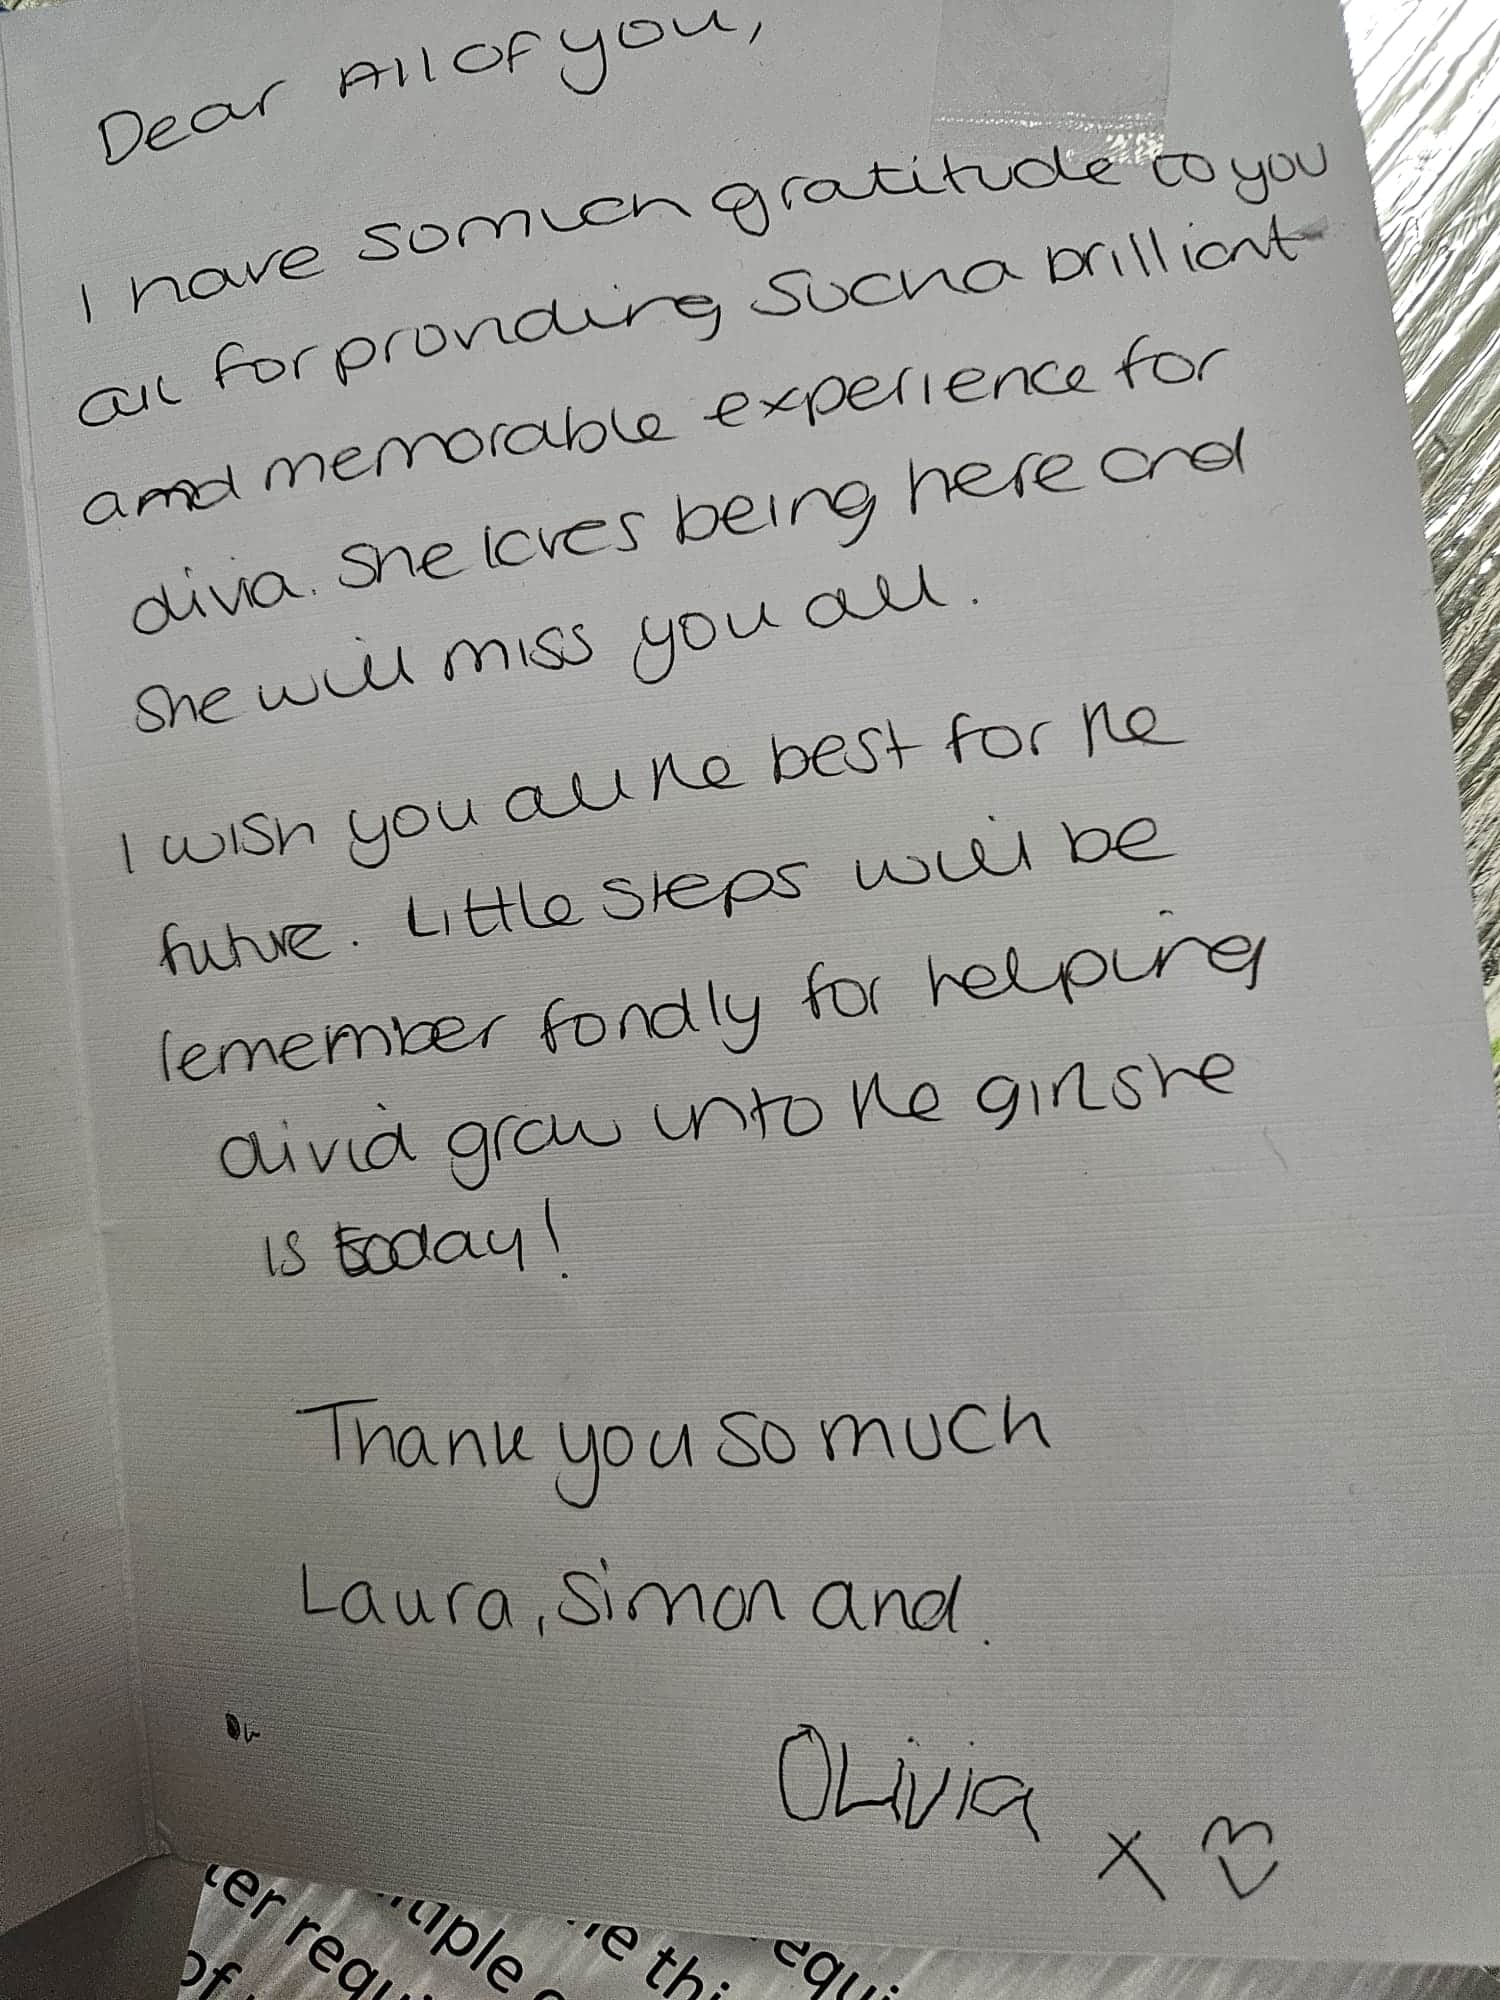 Dear All of you,
I have so much gratitude to you
all for providing such a brilliant
and memorable experience for
Olivia. She loves being here and
she will miss you all.
I wish you all the best for the
future. Little Steps will be
remember fondly for helping
Olivia grow into the girl she
is today!
Thank you so much
Laura, Simon and
OLivia x
ter requ
tiple
he thi
equi
of